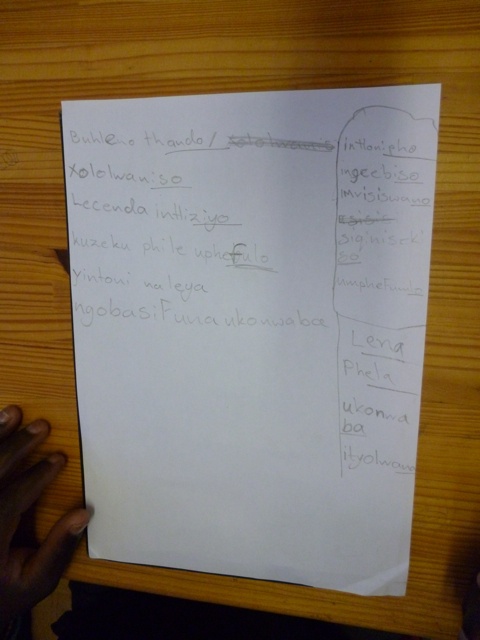 Buhleno thando/
Xololwaniso
Lecenda intliziyo
kuzeku phile uphefulo
yintoni naleya
ngobasifuna ukonwaba
intlonipho
ingcebiso
imvisiswano
siginiseki
so
umphefumlo
Lena
Phela
ukonwa
ba
ityolwa